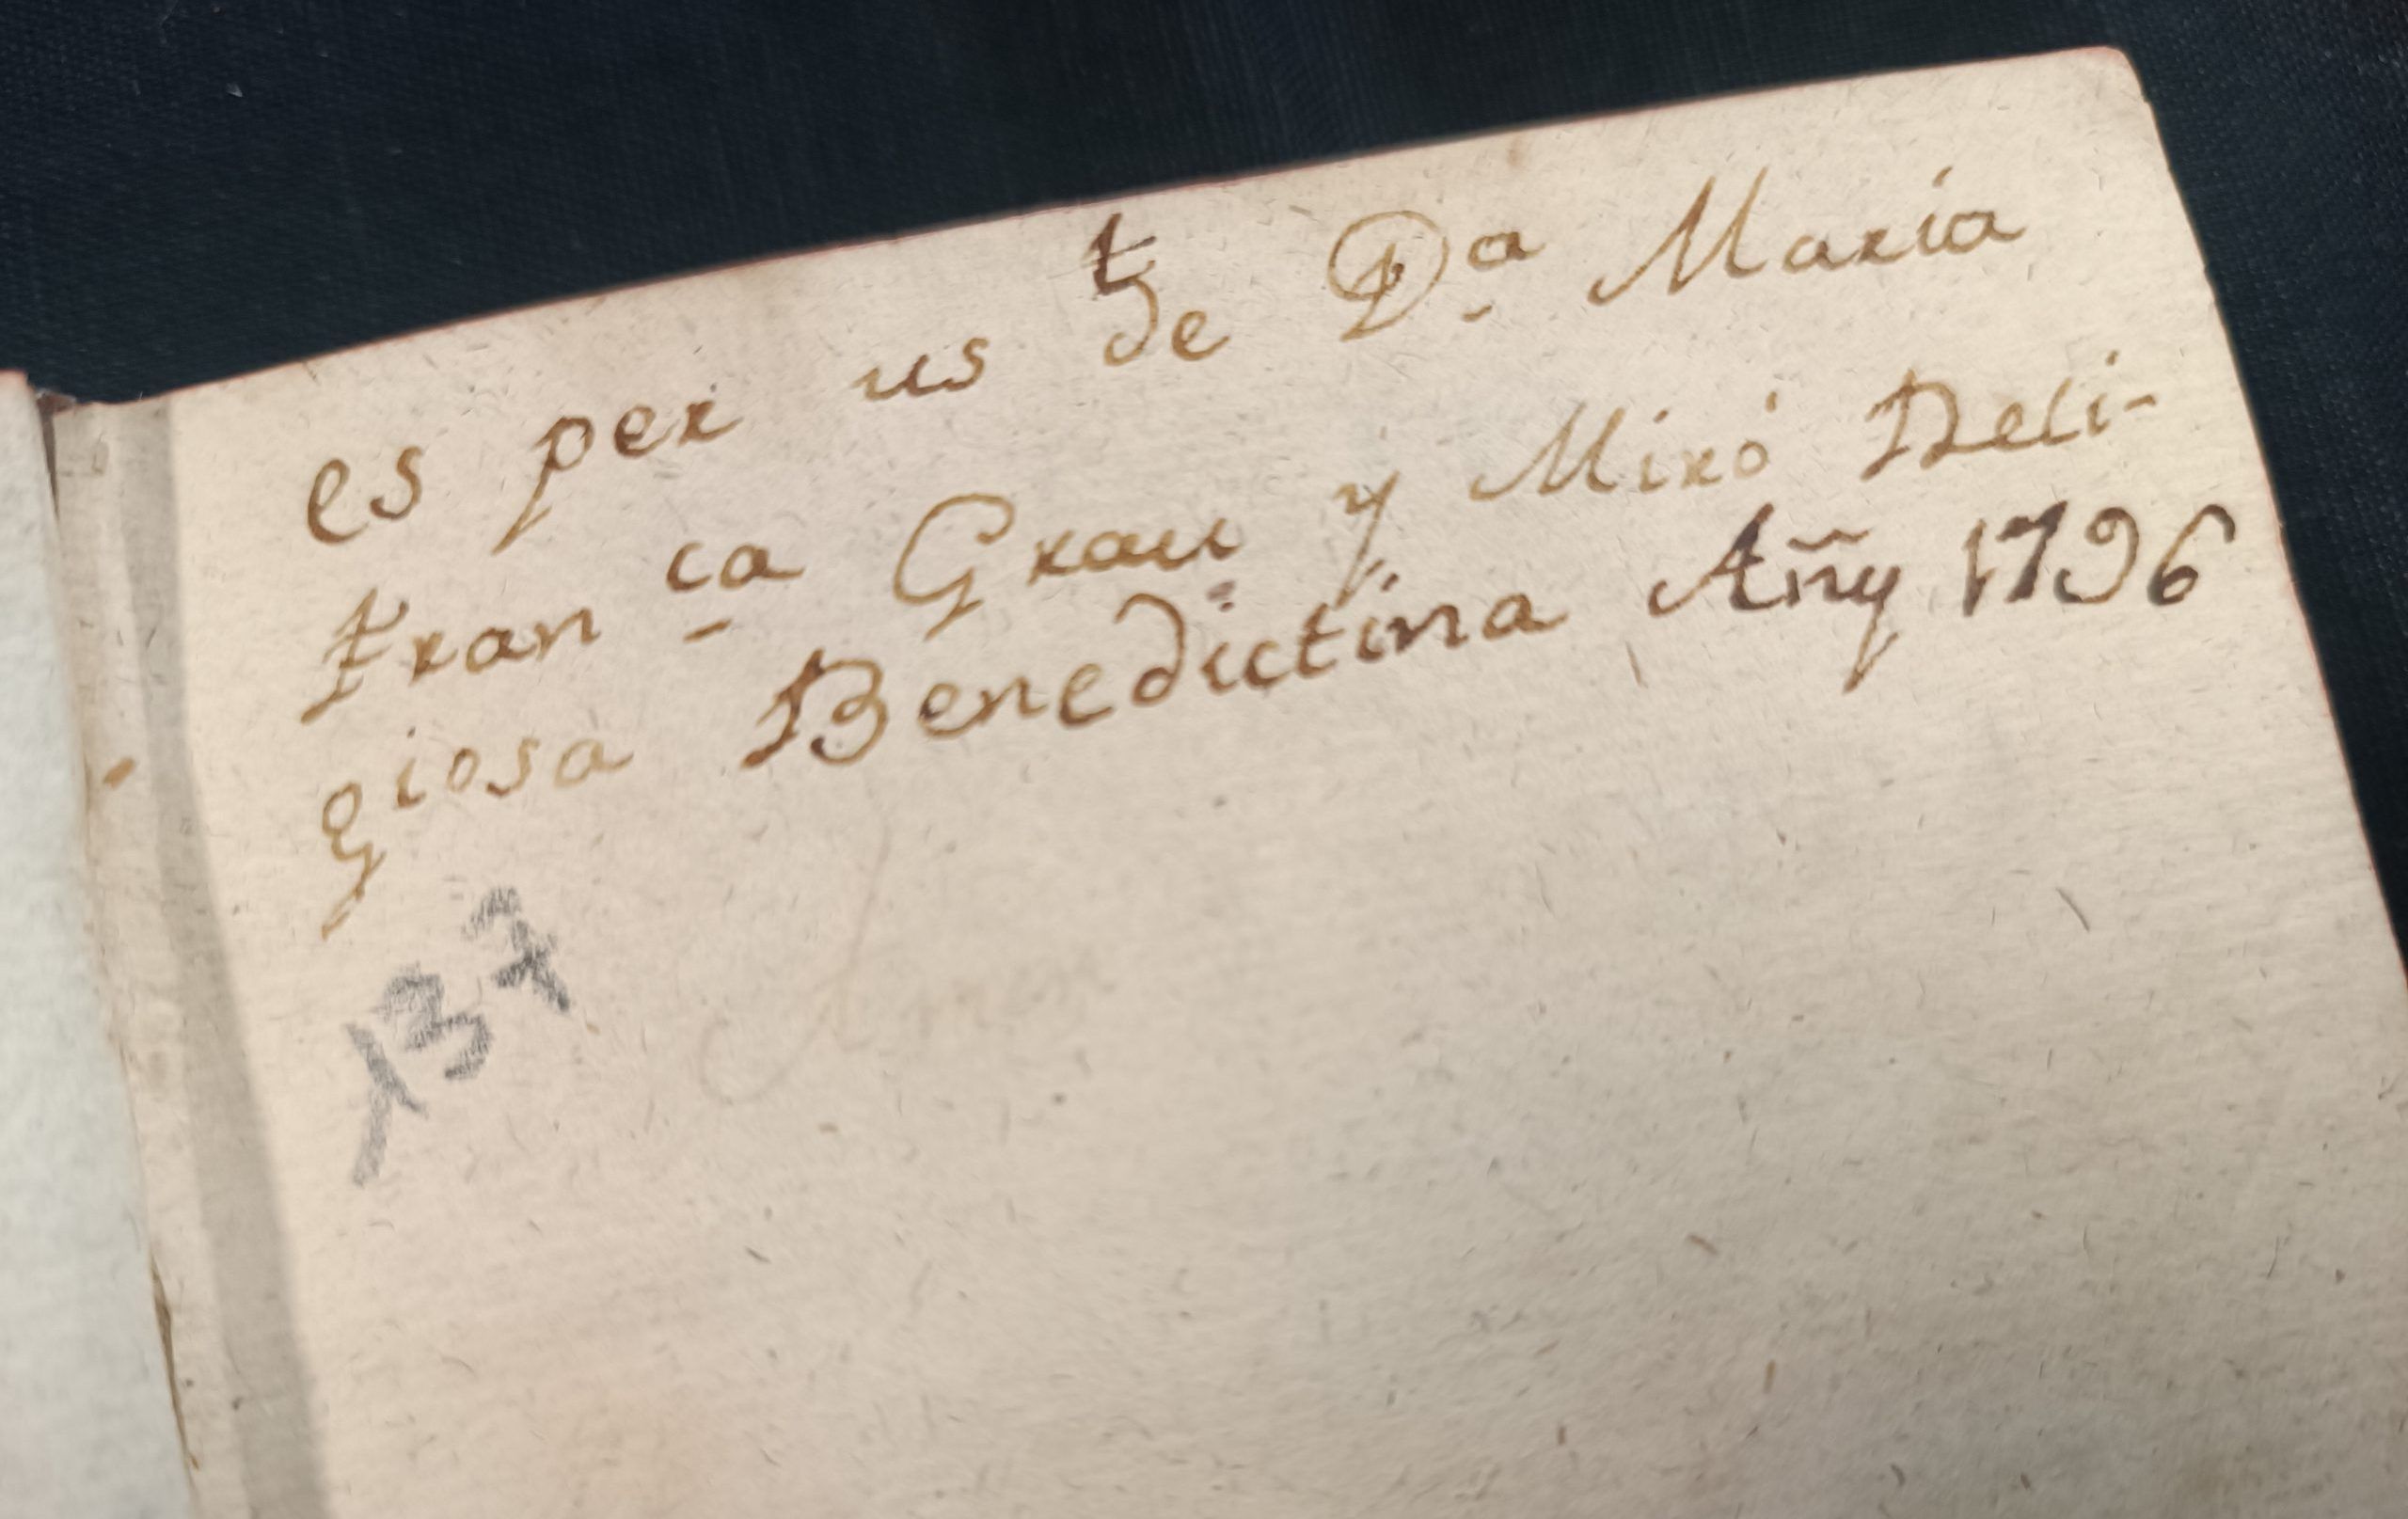 t
es per us de Dª Maria
Franca Grau y Miró Reli-
giosa Benedictina Añy 1796
137
Amen